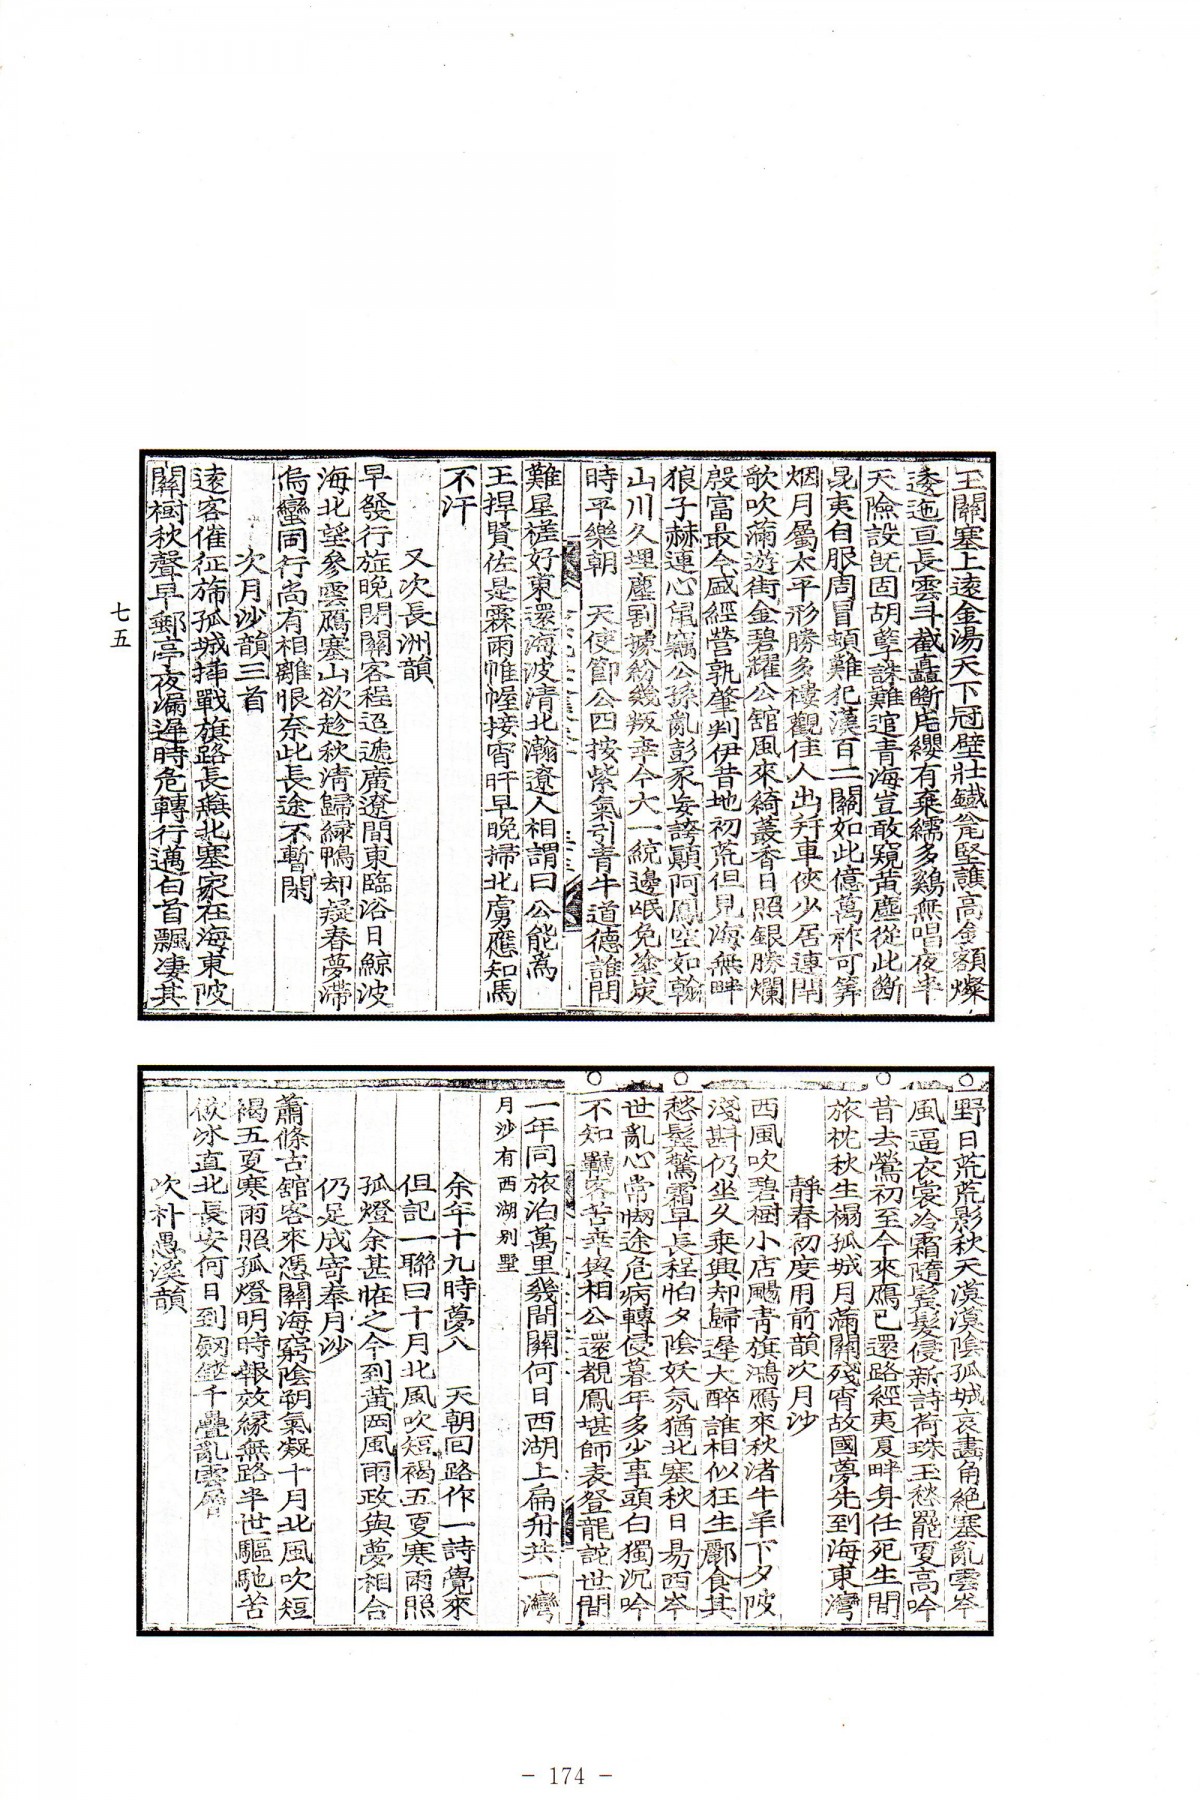 玉關塞上遠金湯天下冠壁壯鐵瓮堅譙高金額燦
逶迤亘長雲斗截矗斷岸纓有棄繻多鷄無唱夜半
天險設旣固胡孽誅難逭青海豈敢窺黃塵從此斷
昆夷自服周冒頓難犯漢百二關如此億萬祚可筭
烟月屬太平形勝多樓觀佳人出犇車俠少居連閈
歌吹滿遊街金碧耀公舘風來綺叢香日照銀勝爛
殷富最今盛經營孰肇判伊昔地初荒但見海無畔
狼子赫連心鼠竊公孫亂彭豕妄誇顚阿鳳空如翰
山川久埋塵割據紛幾叛幸今大一統邊氓免塗炭
時平樂朝 天使節公四按紫氣引青牛道德誰問
難星槎好東還海波淸北瀚遼人相謂曰公能爲
王捍賢佐是霖雨帷幄接宵旰早晩掃北虜應知馬
不汗
又次長洲韻
早發行旌晩閉關客程迢遞廣遼間東臨浴日鯨波
海北望參雲鴈塞山欲趁秋淸歸綠鴨却疑春夢滯
烏蠻同行尙有相離恨奈此長途不暫閑
次月沙韻三首
遠客催征旆孤城揷戰旗路長無北塞家在海東陂
關樹秋聲早郵亭夜漏遲時危轉行邁白首飄凄其
七五
野日荒荒影秋天漠漠陰孤城哀畵角絶塞亂雲岑
風逼衣裳冷霜隨鬢髮侵新詩荷珠玉愁罷夏高吟
昔去鶯初至今來鴈已還路經夷夏畔身任死生間
旅枕秋生榻孤城月滿關殘宵故國夢先到海東灣
靜春初度用前韻次月沙
西風吹碧樹小店颺青旗鴻鴈來秋渚牛羊下夕陂
淺斟仍坐久乘興却歸遲大醉誰相似狂生酈食其
愁鬢驚霜早長程怕夕陰妖氛猶北塞秋日易西岑
世亂心常惻途危病轉侵暮年多少事頭白獨沉吟
不知羈客苦幸與相公還覩鳳堪師表登龍詑世間
一年同旅泊萬里幾間關何日西湖上扁舟共一灣
月沙有西湖別墅
余年十九時夢入 天朝回路作一詩覺來
但記一聯曰十月北風吹短褐五夏寒雨照
孤燈余甚恠之今到黃岡風雨政與夢相合
仍足成寄奉月沙
蕭條古舘客來憑關海窮陰朔氣凝十月北風吹短
褐五夏寒雨照孤燈明時報效緣無路半世驅馳苦
飮冰直北長安何日到劒鋩千疊亂雲層
次朴愚溪韻
- 174 -